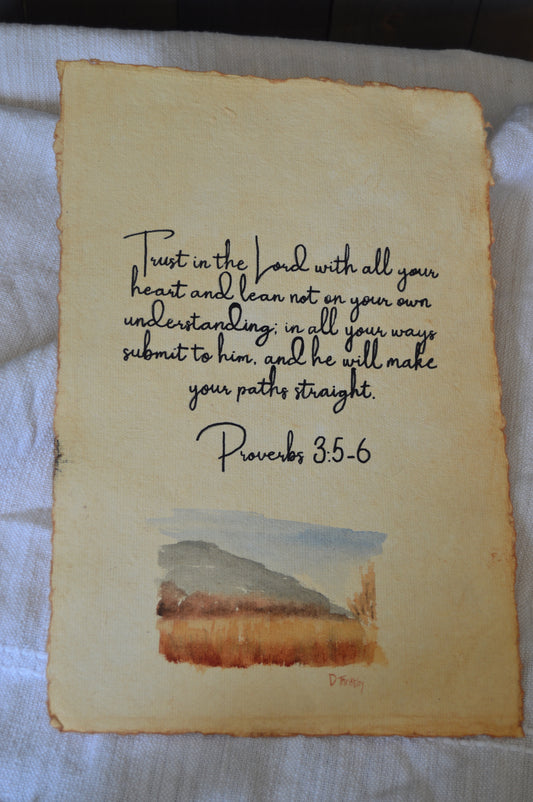 Trust in the Lord with all your
heart and lean not on your own
understanding; in all your ways
submit to him, and he will make
your paths straight.
Proverbs 3:5-6